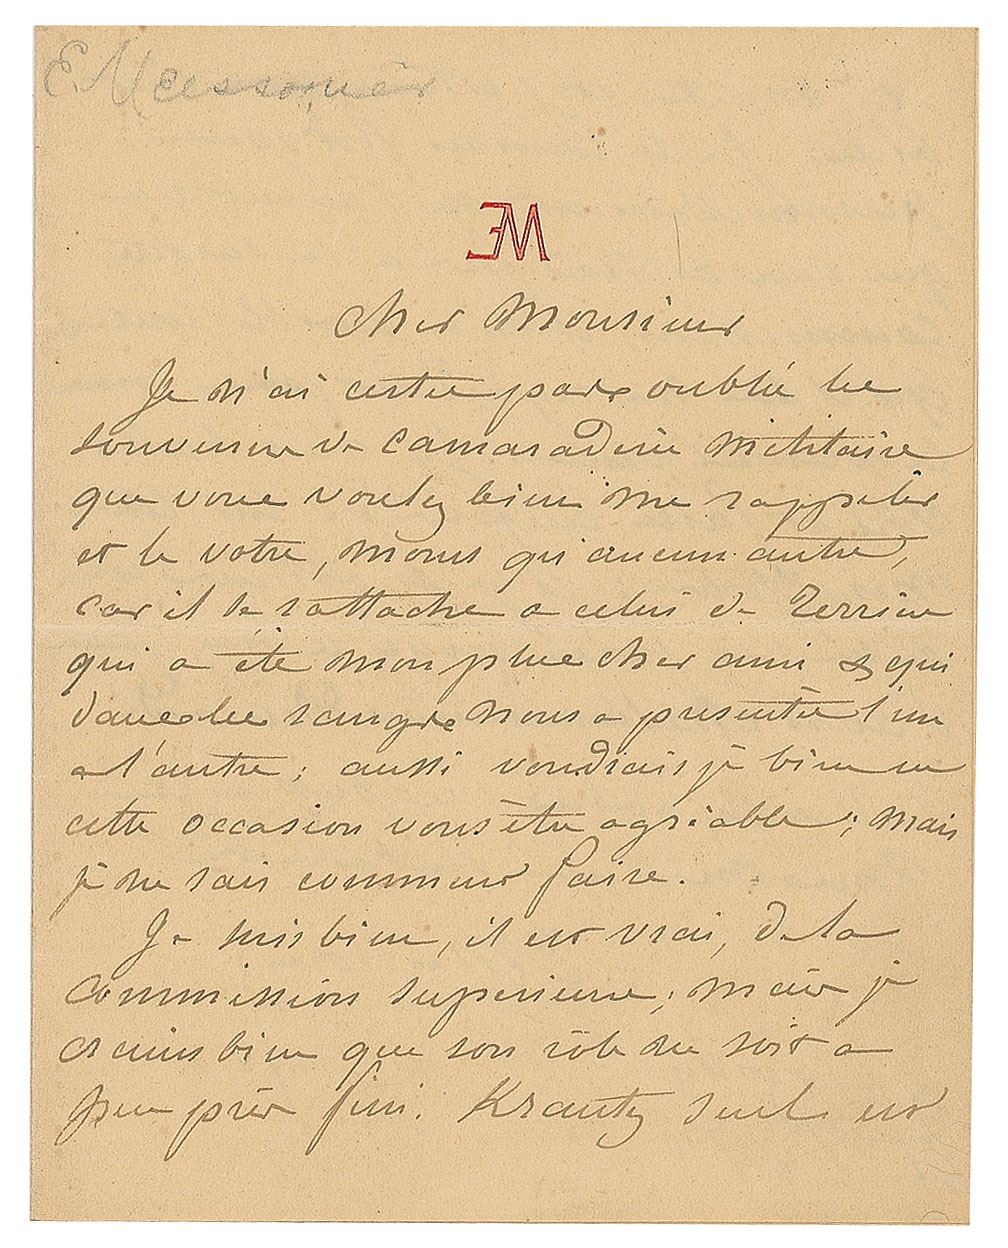 E. Meissonier
EM
Cher Monsieur
Je n'ai certe pas oublié les
souvenirs de camaraderie militaire
que vous voulez bien me rappeler
et le votre, moins qu'aucun autre,
car il se rattache a celui de
qui a été mon plus cher ami & qui
dans les rangs nous a présenté l'un
a l'autre; aussi voudrais je bien en
cette occasion vous être agréable; mais
je ne sais comment faire.
Je suis bien, il est vrai, de la
commission supérieure; mais je
crains bien que son rôle ne soit a
peu près fini. Krantz seul est